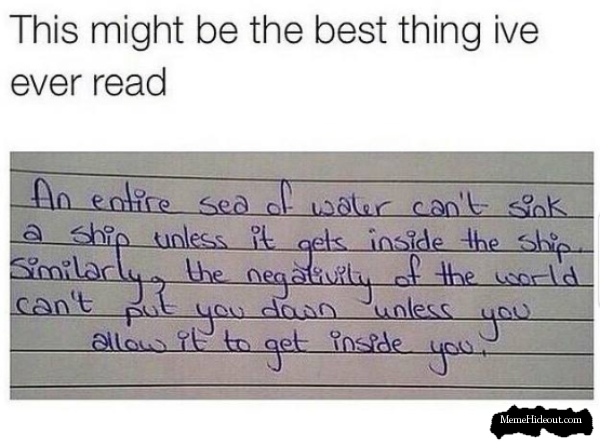 This might be the best thing ive
ever read
An entire sea of water can't sink
a ship unless it gets inside the ship.
Similarly, the negativity of the world
can't put you down unless you
allow it to get inside you.
MemeHideout.com